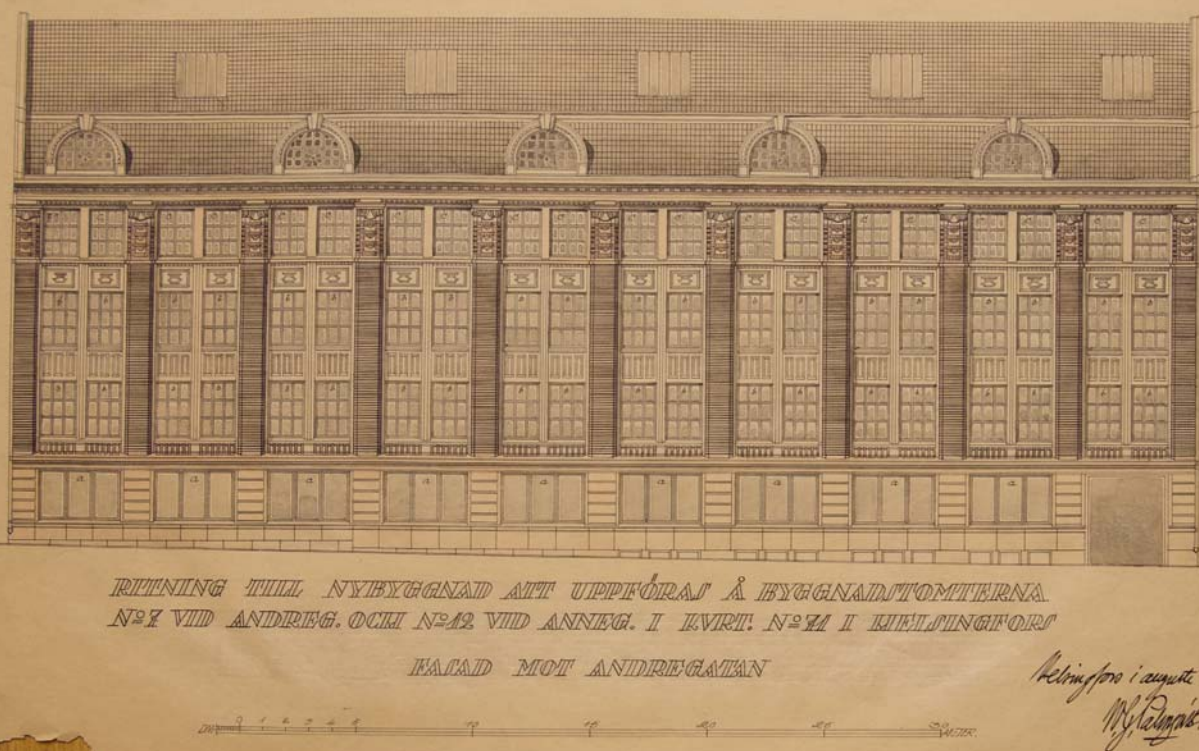 RITNING TILL NYBYGGNAD ATT UPPFÖRAS Å BYGGNADSTOMTERNA
Nº 7 VID ANDREG. OCH Nº 12 VID ANNEG. I KVRT. Nº 71 I HELSINGFORS
FASAD MOT ANDREGATAN
Helsingfors i augusti
0 1 2 3 4 5 10 15 20 25 30 METER.